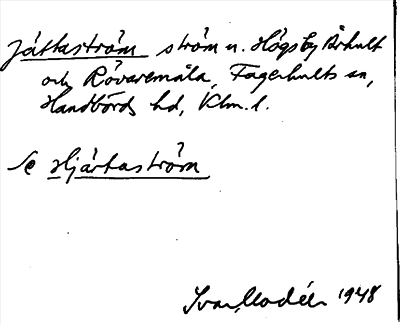 Játtaström ström n. Högsby Århult
och Rövaremåla, Fagerhults sn,
Handbörds hd, Klm. l.
Se Hjärtaström
Ivar Modéer 1948